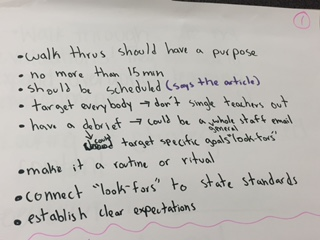 1
• walk thrus should have a purpose
• no more than 15 min
• should be scheduled (says the article)
• target everybody → don't single teachers out
• have a debrief → could be a whole staff email
general
could target specific goals "look-fors"
• make it a routine or ritual
• connect "look-fors" to state standards
• establish clear expectations